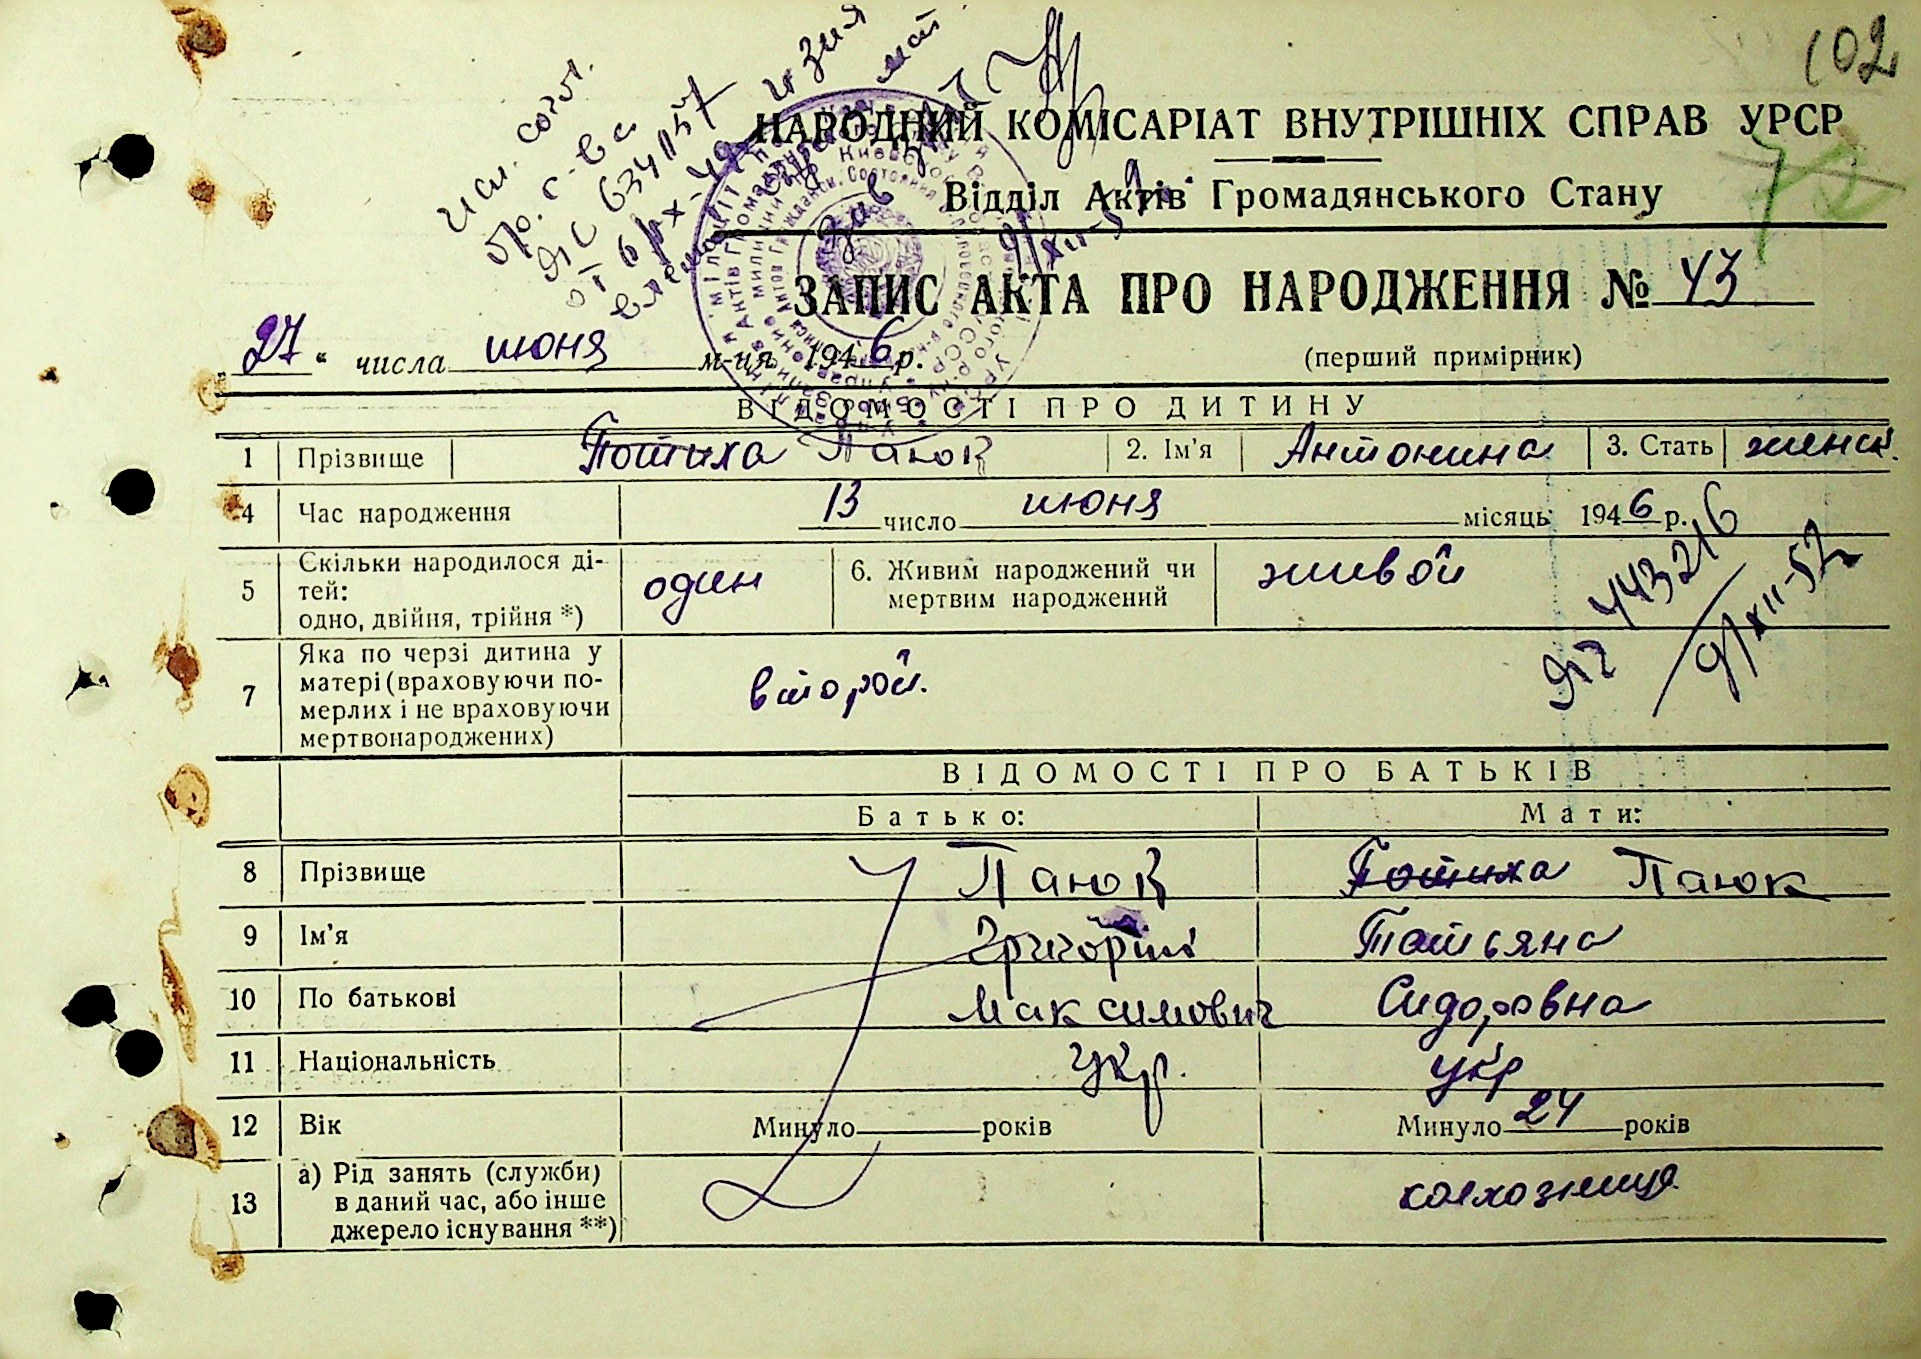 102
НАРОДНИЙ КОМІСАРІАТ ВНУТРІШНІХ СПРАВ УРСР
Відділ Актів Громадянського Стану
ЗАПИС АКТА ПРО НАРОДЖЕННЯ № 43
„27“ числа июня м-ця 1946 р.
(перший примірник)
ВІДОМОСТІ ПРО ДИТИНУ
1 Прізвище Потиха Панюк 2. Ім'я Антонина 3. Стать женск.
4 Час народження 13 число июня місяць 1946 р.
5 Скільки народилося ді-
тей:
одно, двійня, трійня *) один 6. Живим народжений чи
мертвим народжений живой
ЯЧ 443216
9/XII-52
7 Яка по черзі дитина у
матері (враховуючи по-
мерлих і не враховуючи
мертвонароджених) второй.
ВІДОМОСТІ ПРО БАТЬКІВ
Батько: Мати:
8 Прізвище Панюк Потиха Панюк
9 Ім'я Григорий Татьяна
10 По батькові Максимович Сидоровна
11 Національність укр. укр
12 Вік Минуло років Минуло 24 років
13 а) Рід занять (служби)
в даний час, або інше
джерело існування **) колхозница